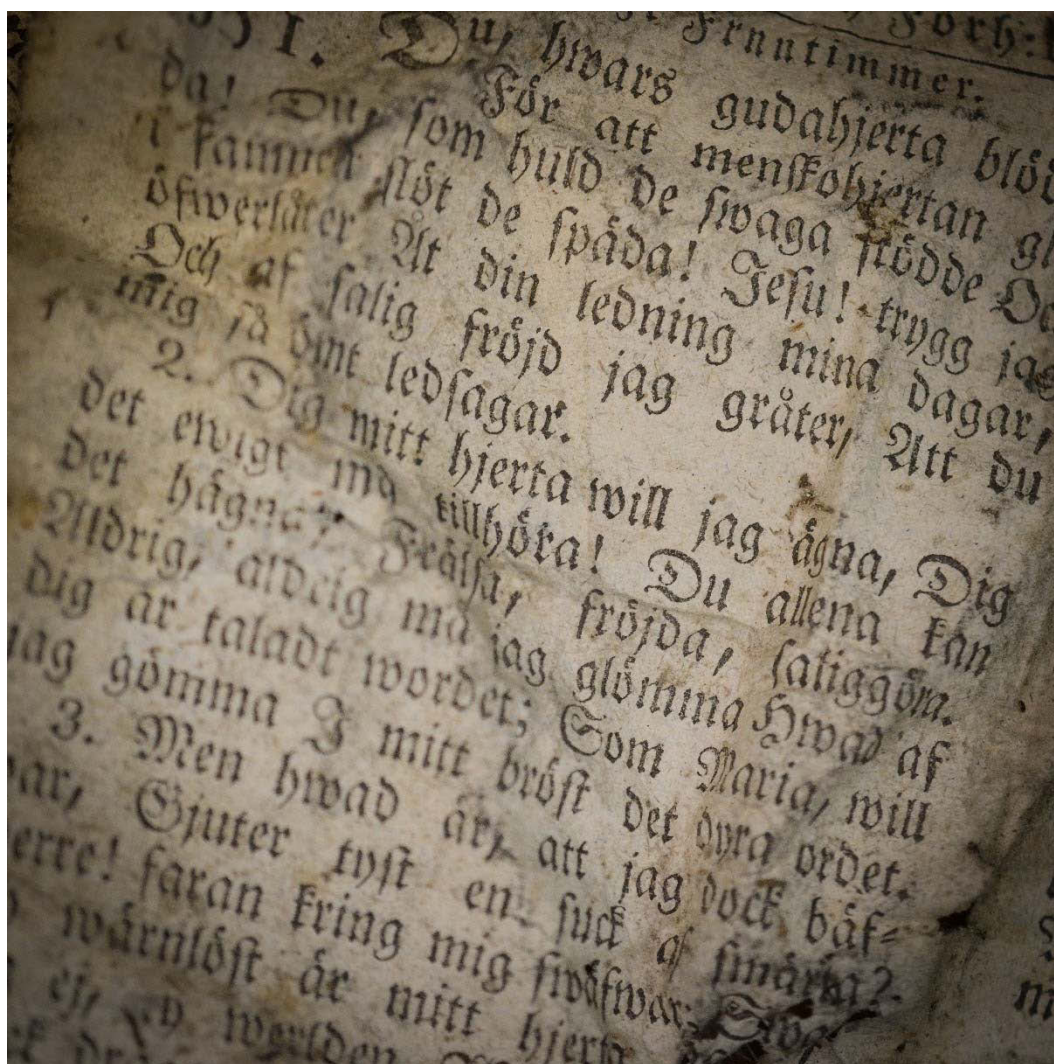 Forh:
Fruntimmer.
1. Du, hwars gudahjerta blöd
För att menskohjertan gl
da! Du, som huld de swaga stödde Oc
i famnen slöt de späda! Jesu! trygg jag
öfwerlåter Åt din ledning mina dagar,
Och af salig fröjd jag gråter, Att du
mig så ömt ledsagar.
2. Dig mitt hjerta will jag ägna, Dig
det ewigt må tillhöra! Du allena kan
det hägna, Frälsa, fröjda, saliggöra.
Aldrig, aldrig må jag glömma Hwad af
dig är taladt wordet; Som Maria, will
jag gömma I mitt bröst det dyra ordet.
3. Men hwad är, att jag dock bäf=
ar, Gjuter tyst en suck af smärta?
erre! faran kring mig swäfwar: Swa
wärnlöst är mitt hjerta
ej, werlden